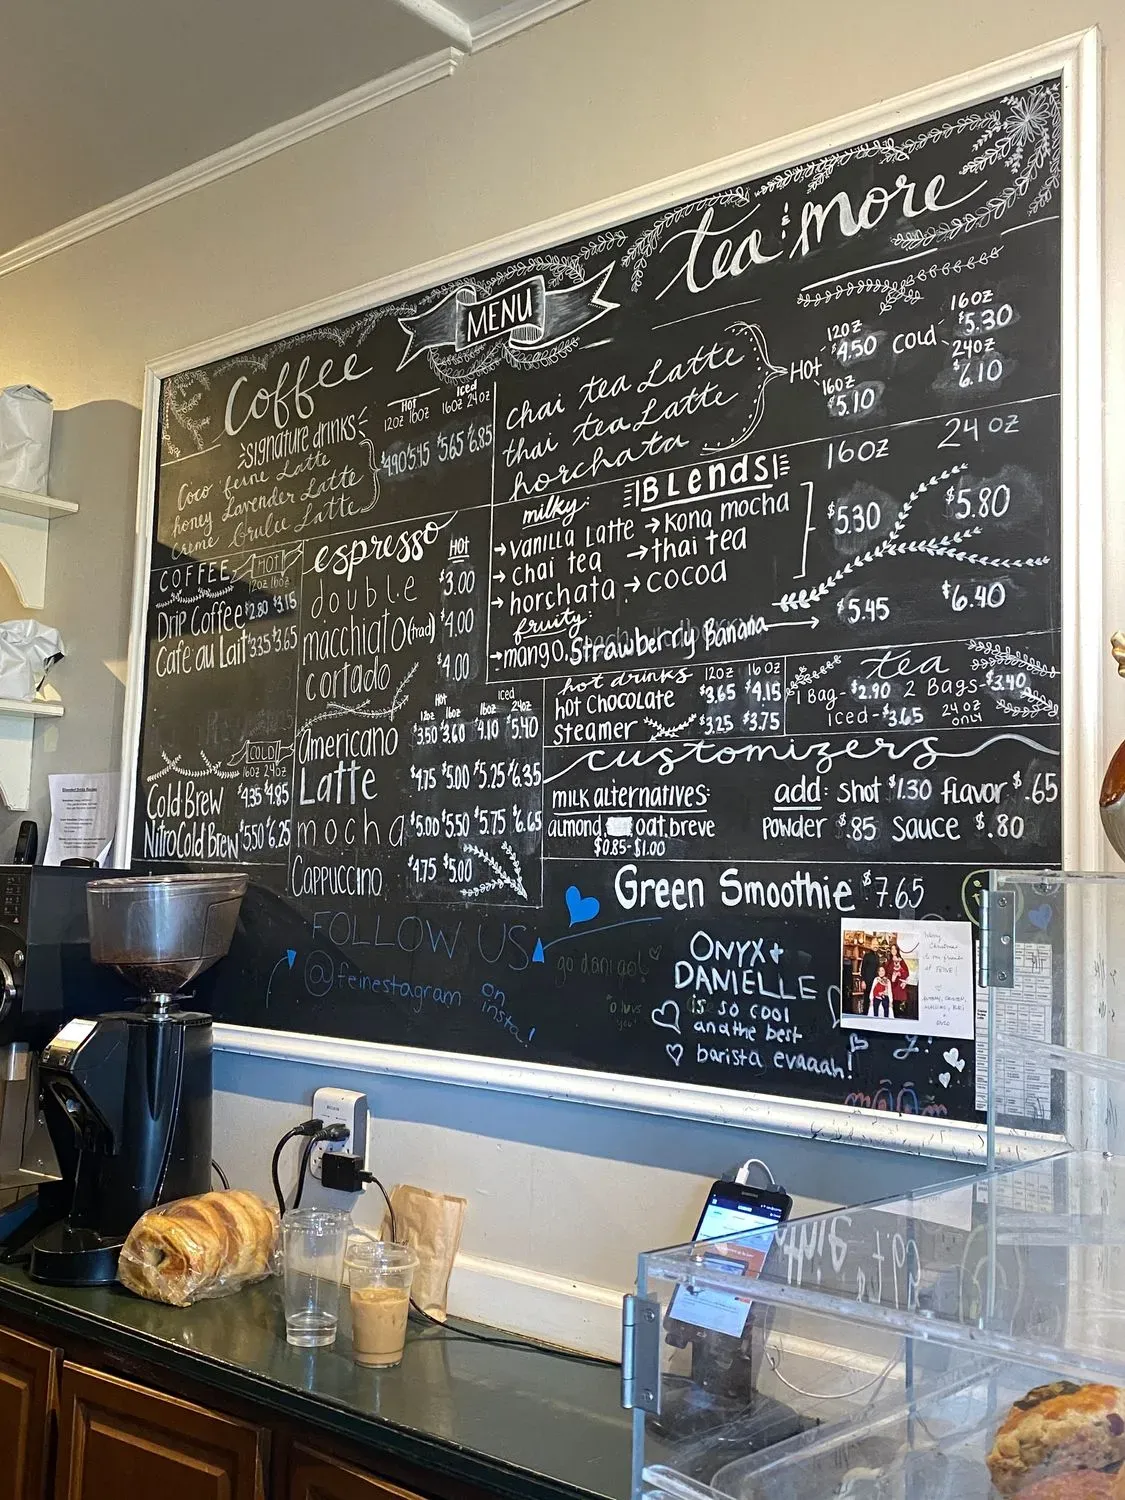 MENU
Coffee
signature drinks
Hot
12oz 16oz
Iced
16oz 24oz
Coco feine Latte
honey Lavender Latte
creme Brulee Latte
$4.90 5.45 $5.65 $6.85
COFFEE HOT
12oz 16oz
Drip Coffee $2.80 $3.15
Cafe au Lait 3.35 $3.65
COLD
16oz 24oz
Cold Brew $4.35 $4.85
Nitro Cold Brew $5.50 $6.25
espresso HOT
double $3.00
macchiato (trad) $4.00
cortado $4.00
Hot
12oz 16oz
iced
16oz 24oz
Americano $3.50 $3.60 $4.10 $5.40
Latte $4.75 $5.00 $5.25 $6.35
mocha $5.00 $5.50 $5.75 $6.65
Cappuccino $4.75 $5.00
tea & more
chai tea Latte
thai tea Latte
horchata
HOT
12oz
$4.50
16oz
$5.10
COLD
16oz
$5.30
24oz
6.10
BLENDS
16oz 24oz
milky:
→ vanilla Latte → kona mocha
→ chai tea → thai tea
→ horchata → cocoa
$5.30 $5.80
fruity:
→ mango, Strawberry Banana → $5.45 $6.40
hot drinks 12oz 16oz
hot chocolate $3.65 $4.15
steamer $3.25 $3.75
tea
1 Bag- $2.90 2 Bags- $3.40
iced- $3.65 24oz only
customizers
milk alternatives:
almond, oat, breve
$0.85-$1.00
add: shot $1.30 flavor $.65
powder $.85 sauce $.80
Green Smoothie $7.65
FOLLOW US:
@feinestagram on
insta!
go dani go!
ONYX +
DANIELLE
is so cool
and the best
barista evaaah!
Merry
Christmas